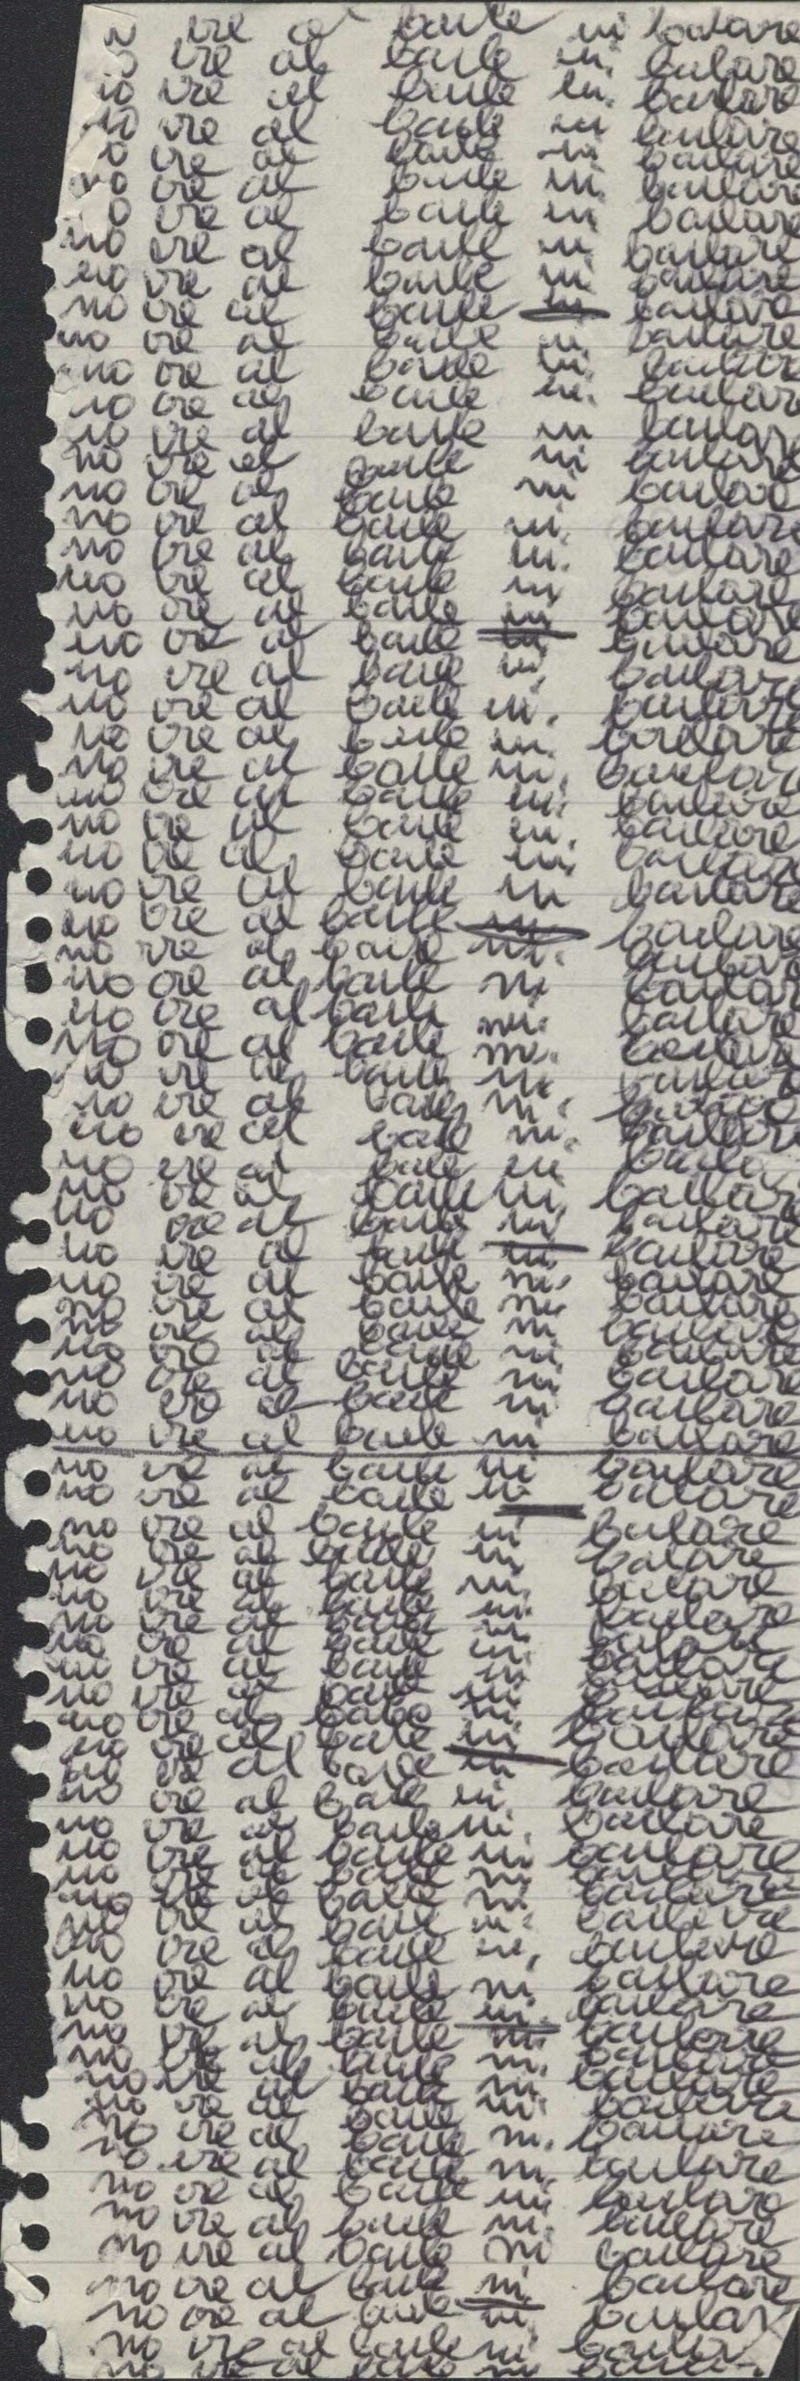 no ire al baile ni bailare
no ire al baile ni bailare
no ire al baile ni bailare
no ire al baile ni bailare
no ire al baile ni bailare
no ire al baile ni bailare
no ire al baile ni bailare
no ire al baile ni bailare
no ire al baile ni bailare
no ire al baile ni bailare
no ire al baile ni bailare
no ire al baile ni bailare
no ire al baile ni bailare
no ire al baile ni bailare
no ire al baile ni bailare
no ire al baile ni bailare
no ire al baile ni bailare
no ire al baile ni bailare
no ire al baile ni bailare
no ire al baile ni bailare
no ire al baile ni bailare
no ire al baile ni bailare
no ire al baile ni bailare
no ire al baile ni bailare
no ire al baile ni bailare
no ire al baile ni bailare
no ire al baile ni bailare
no ire al baile ni bailare
no ire al baile ni bailare
no ire al baile ni bailare
no ire al baile ni bailare
no ire al baile ni bailare
no ire al baile ni bailare
no ire al baile ni bailare
no ire al baile ni bailare
no ire al baile ni bailare
no ire al baile ni bailare
no ire al baile ni bailare
no ire al baile ni bailare
no ire al baile ni bailare
no ire al baile ni bailare
no ire al baile ni bailare
no ire al baile ni bailare
no ire al baile ni bailare
no ire al baile ni bailare
no ire al baile ni bailare
no ire al baile ni bailare
no ire al baile ni bailare
no ire al baile ni bailare
no ire al baile ni bailare
no ire al baile ni bailare
no ire al baile ni bailare
no ire al baile ni bailare
no ire al baile ni bailare
no ire al baile ni bailare
no ire al baile ni bailare
no ire al baile ni bailare
no ire al baile ni bailare
no ire al baile ni bailare
no ire al baile ni bailare
no ire al baile ni bailare
no ire al baile ni bailare
no ire al baile ni bailare
no ire al baile ni bailare
no ire al baile ni bailare
no ire al baile ni bailare
no ire al baile ni bailare
no ire al baile ni bailare
no ire al baile ni bailare
no ire al baile ni bailare
no ire al baile ni bailare
no ire al baile ni bailare
no ire al baile ni bailare
no ire al baile ni bailare
no ire al baile ni bailare
no ire al baile ni bailare
no ire al baile ni bailare
no ire al baile ni bailare
no ire al baile ni bailare
no ire al baile ni bailare
no ire al baile ni bailar
no ire al baile ni bailar
no ire al baile ni